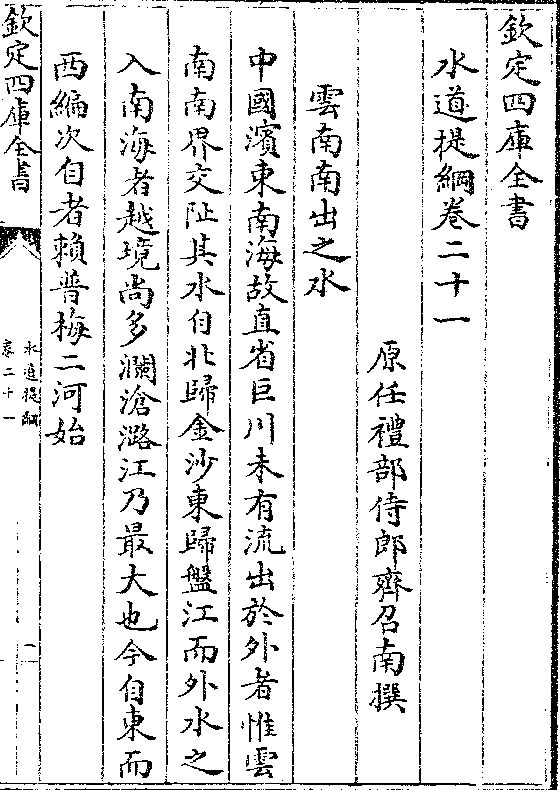 欽定四庫全書
水道提綱卷二十一
原任禮部侍郎齊召南撰
雲南南出之水
中國濱東南海故直省巨川未有流出於外者惟雲
南南界交阯其水自北歸金沙東歸盤江而外水之
入南海者越境尚多瀾滄潞江乃最大也今自東而
西編次自者賴普梅二河始
欽定四庫全書
水道提綱
卷二十一
一